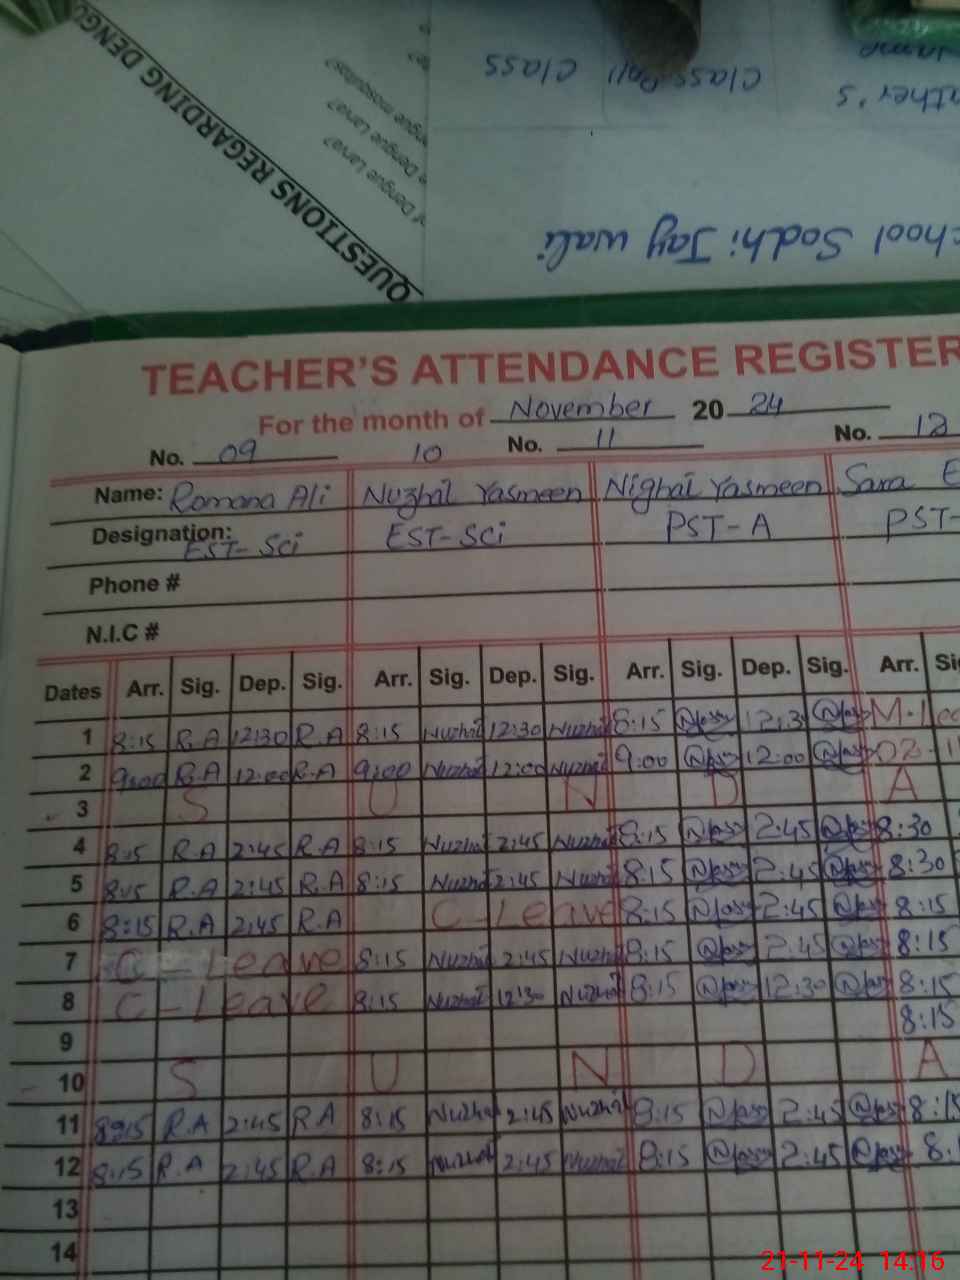 QUESTIONS REGARDING DENGU
Dengue Larva?
Dengue Larva?
ngue mosquitos?
ther's Name Class Roll Class
chool Sodhi Jay wali
TEACHER'S ATTENDANCE REGISTER
For the month of November 20 24
No. 09 10 No. 11 No. 12
Name: Romana Ali Nuzhat Yasmeen Nighat Yasmeen Sara E
Designation: EST-Sci EST-Sci PST-A PST-
Phone #
N.I.C #
Dates Arr. Sig. Dep. Sig. Arr. Sig. Dep. Sig. Arr. Sig. Dep. Sig. Arr. Si
1 8:15 R.A 12:30 R.A 8:15 Nuzhat 12:30 Nuzhat 8:15 12:3 M.Lea
2 9:00 R.A 12:00 R.A 9:00 Nuzhat 12:00 Nuzhat 9:00 12:00 02-11
3 S U N D A
4 8:15 R.A 2:45 R.A 8:15 Nuzhat 2:45 Nuzhat 8:15 2:45 8:30
5 8:15 R.A 2:45 R.A 8:15 Nuzhat 2:45 Nuzhat 8:15 2:45 8:30
6 8:15 R.A 2:45 R.A C-Leave 8:15 2:45 8:15
7 C-Leave 8:15 Nuzhat 2:45 Nuzhat 8:15 2:45 8:15
8 C-Leave 8:15 Nuzhat 12:30 Nuzhat 8:15 12:30 8:15
9 8:15
10 S U N D A
11 8:15 R.A 2:45 R.A 8:15 Nuzhat 2:45 Nuzhat 8:15 2:45 8:15
12 8:15 R.A 2:45 R.A 8:15 Nuzhat 2:45 Nuzhat 8:15 2:45 8:1
13
14
21-11-24 14:16